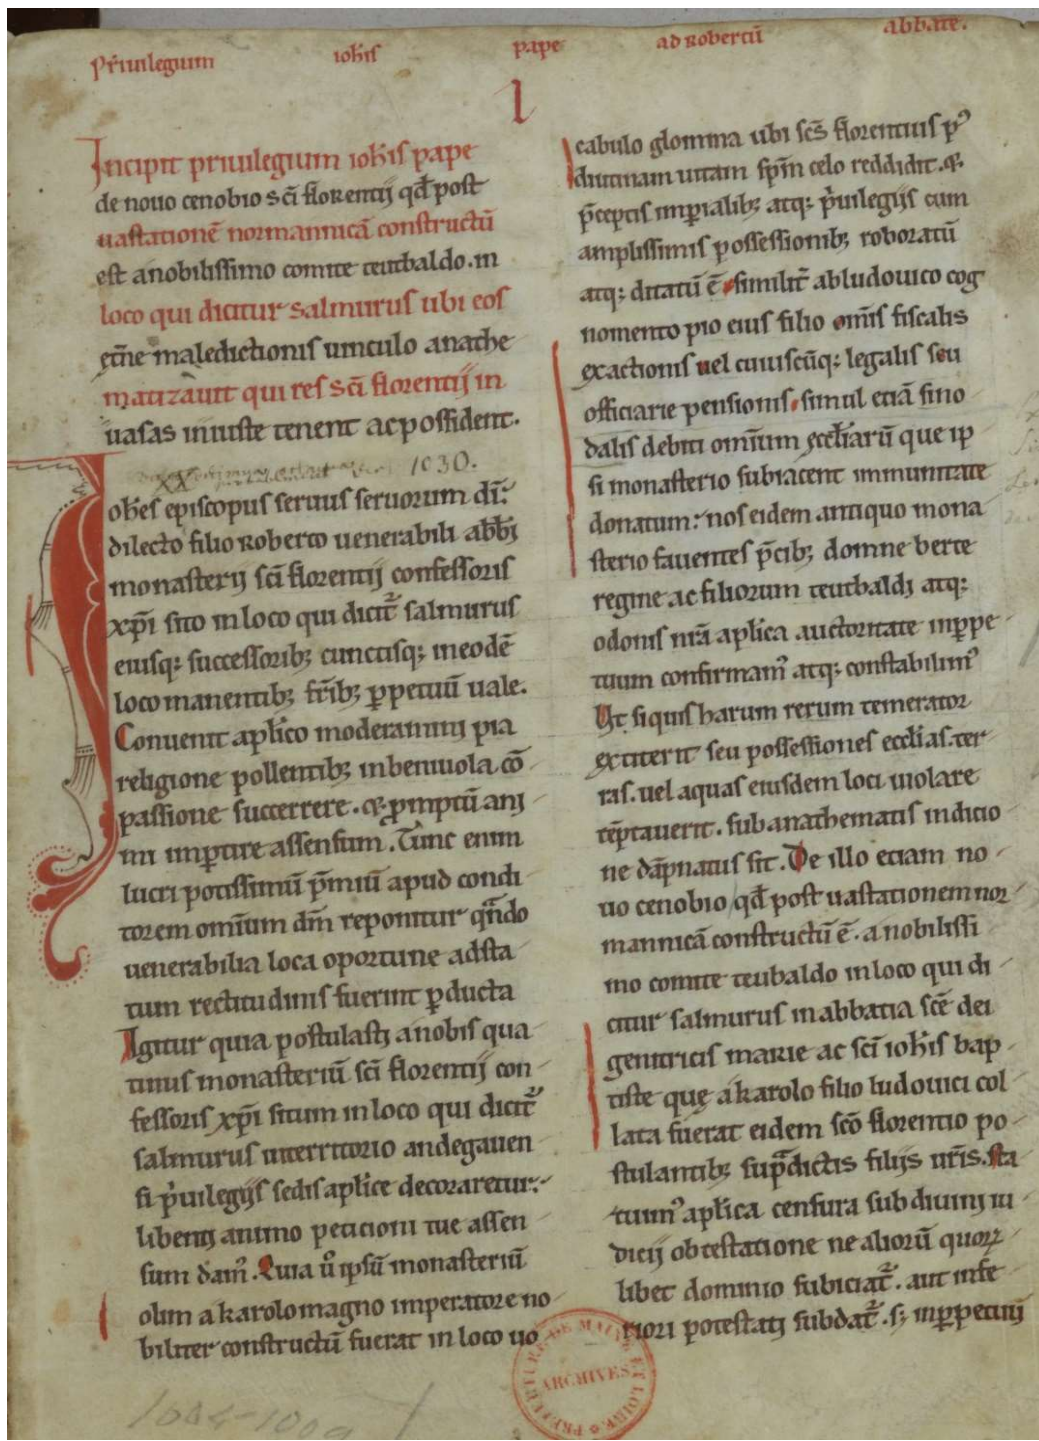 Priuilegium ioħis pape ad Robertū abbatē.
I
Incipit priuilegium ioħis pape
de nouo cenobio sc̄i florentij qđ post
uastationē normannicā constructū
est a nobilissimo comite teutbaldo. in
loco qui dicitur salmurus ubi eos
etne maledictionis uinculo anathe
matizauit qui res sc̄i florentij in
uasas iniuste tenent ac possident.
1030.
Iohēs episcopus seruus seruorum dī.
dilecto filio Roberto uenerabili abbi
monasterij sc̄i florentij confessoris
xp̄i sito in loco qui dicit᷑ salmurus
eiusq; successorib; cunctisq; in eodē
loco manentib; fr̄ib; ꝑpetuū uale.
Conuenit ap̄lico moderamini pia
religione pollentib; in beniuola cō-
passione succerrere. & ꝓmptū ani-
mi imꝑtire assensum. Tunc enim
lucri potissimū p̄miū apud condi-
torem omīum dm̄ reponitur qn̄do
uenerabilia loca oportune ad sta-
tum rectitudinis fuerint ꝑducta
Igitur quia postulastj a nobis qua-
tinus monasteriū sc̄i florentij con-
fessoris xp̄i situm in loco qui dicit᷑
salmurus in territorio andegauen-
si p̄uilegijs sedis ap̄lice decoraretur.
libentj animo peticioni tue assen-
sum dam᷒. Quia ů ip̄sū monasteriū
olim a karolo magno imperatore no-
biliter constructū fuerat in loco uo
cabulo glomna ubi sc̄s florentius p᷒
diutinam uitam sp̄m celo reddidit. &
p̄ceptis imꝑialib; atq; p̄uilegijs cum
amplissimis possessionib; roboratū
atq; ditatū ē similit᷑ ab ludouico cog
nomento pio eius filio om̄is fiscalis
exactionis uel cuiuscūq; legalis seu
officiarie pensionis. simul etiā sino
dalis debiti omīum eccl̄iarū que ip
si monasterio subiacent immunitate
donatum: nos eidem antiquo mona
sterio fauentes p̄cib; domne berte
regine ac filiorum teutbaldj atq;
odonis nr̄a ap̄lica auctoritate inꝑpe-
tuum confirmam᷒ atq; constabilim᷒
Vt siquis harum rerum temerator
extiterit seu possessiones ecclīas. ter-
ras. uel aquas eiusdem loci uiolare
tēptauerit. sub anathematis indicio-
ne dāpnatus sit. De illo etiam no-
uo cenobio qđ post uastationem nor-
mannicā constructū ē. a nobilissi-
mo comite teubaldo in loco qui di-
citur salmurus in abbatia sc̄e dei
genitricis marie ac sc̄i ioħis bap-
tiste quę a karolo filio ludouici col-
lata fuerat eidem sc̄o florentio po-
stulantib; sup̄dictis filijs ur̄is. sta-
tuim᷒ ap̄lica censura sub diuinj iu-
dicij obtestatione ne aliorū quoꝝ-
libet dominio subiciat᷑. aut infe-
riori potestatj subdat᷑. s; inꝑpetuū
PREFECTURE DE MAINE ET LOIRE
ARCHIVES